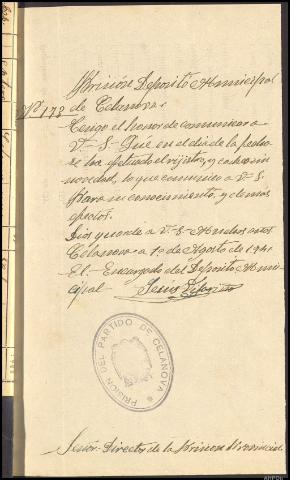 Prision Deposito Municipal
Nº 178 de Celanova.
Tengo el honor de comunicar a
V- S- Que en el dia de la fecha
se ha efetuado el rijistro, y
novedad, lo que comunico a V- S.
Para su conocimiento, y demas
efectos.
Dios guarde a V- S- Muchos anos
Celanova a 1º de Agosto de 1941
El Encargado del Deposito Muni-
cipal Jesus
PRISIÓN DEL PARTIDO DE CELANOVA
Señor- Director de la Prision Provincial